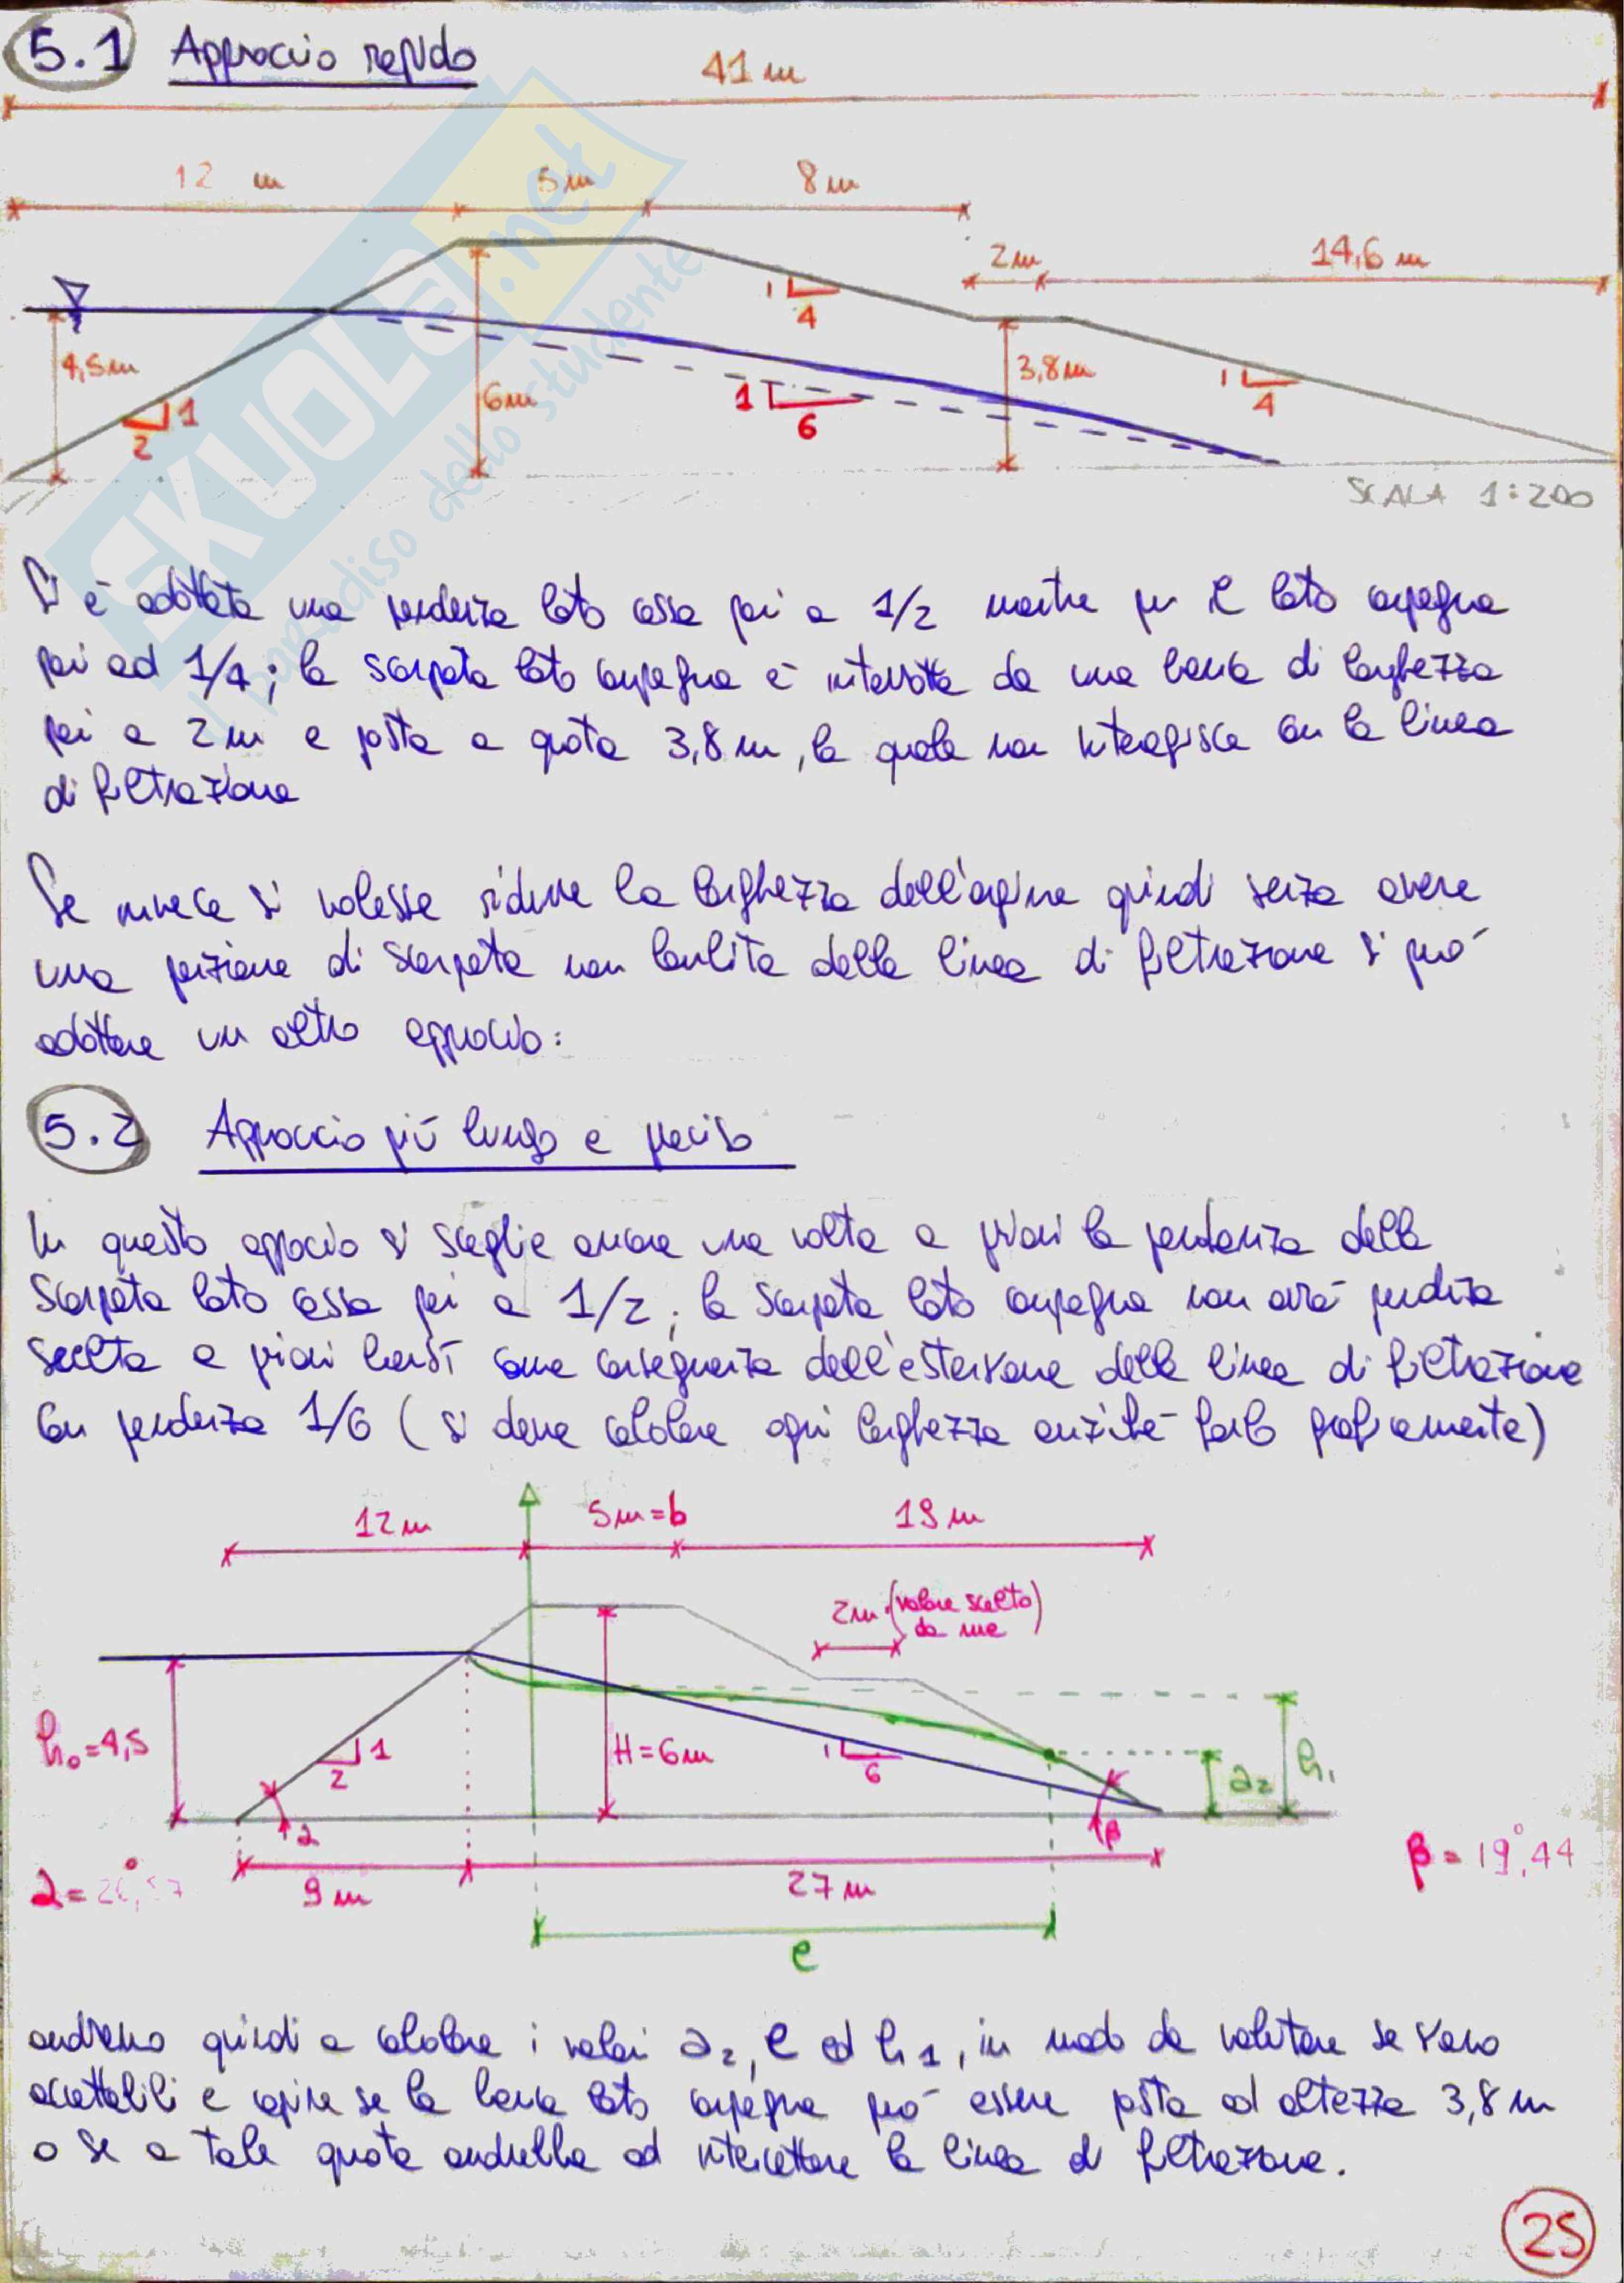 5.1 Approccio rapido
41 m
12 m
5 m
8 m
2 m
14,6 m
1
4
4,5 m
1
2
6 m
1
6
3,8 m
1
4
SCALA 1:200
SKUOLA.net
il paradiso dello studente
Si è adottata una pendenza lato cassa pari a 1/2 mentre per il lato campagna
pari ad 1/4; la scarpata lato campagna è interrotta da una banca di larghezza
pari a 2 m e posta a quota 3,8 m, la quale non interagisce con la linea
di filtrazione
Se invece si volesse ridurre la larghezza dell'argine quindi senza avere
una porzione di scarpata non lambita dalla linea di filtrazione si può
adottare un altro approccio:
5.2 Approccio più lungo e preciso
In questo approccio si sceglie ancora una volta a priori la pendenza della
scarpata lato cassa pari a 1/2; la scarpata lato campagna non avrà pendenza
scelta a priori bensì come conseguenza dell'estensione della linea di filtrazione
con pendenza 1/6 (si deve calcolare ogni larghezza anziché farlo graficamente)
12 m
5 m = b
19 m
2 m (valore scelto
da me)
h₀ = 4,5
1
2
H = 6 m
1
6
a₂
h₁
α
β
α = 26°,57
9 m
27 m
β = 19°,44
l
andremo quindi a calcolare i valori a₂, l ed h₁, in modo da valutare se siano
accettabili e capire se la banca lato campagna può essere posta ad altezza 3,8 m
o se a tale quota andrebbe ad intercettare la linea di filtrazione.
25